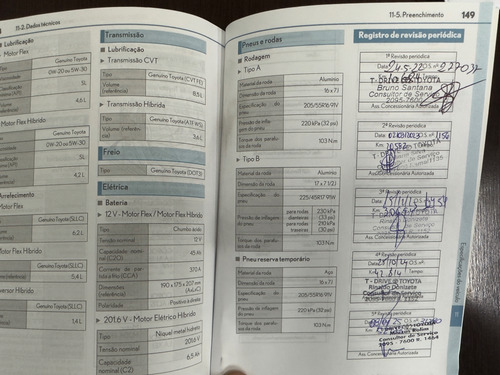 11-2. Dados técnicos
Lubrificação
Motor Flex
Genuino Toyota
0W-20 ou 5W-30
SL
4,6 L
Motor Flex Híbrido
Genuino Toyota
0W-20 ou 5W-30
SL
4,2 L
Arrefecimento
Motor Flex
Genuino Toyota (SLLC)
6,2 L
Flex Híbrido
Genuino Toyota (SLLC)
5,4 L
versor Híbrido
Genuino Toyota (SLLC)
1,4 L
Transmissão
Lubrificação
Transmissão CVT
Tipo
Genuino Toyota (CVT FE)
Volume (referência)
8,5 L
Transmissão Híbrida
Tipo
Genuino Toyota (ATF WS)
Volume (referência)
3,6 L
Freio
Tipo
Genuino Toyota (DOT3)
Elétrica
Bateria
12 V - Motor Flex / Motor Flex Híbrido
Tipo
Chumbo ácido
Tensão nominal
12 V
Capacidade nominal (C20)
45 Ah
Corrente de partida a frio (CCA)
370 A
Dimensões
190 x 175 x 207 mm
(AxLxC)
Polaridade
Positivo à direita
201.6 V - Motor Elétrico Híbrido
Tipo
Níquel metal hidreto
Tensão nominal
201,6 V
Capacidade nominal (C2)
6,5 Ah
11-5. Preenchimento
149
Pneus e rodas
Rodagem
Tipo A
Material da roda
Alumínio
Dimensão da roda
16 x 7 J
Especificação do pneu
205/55R16 91V
Pressão de inflagem do pneu
220 kPa (32 psi)
Torque dos parafusos da roda
103 N.m
Tipo B
Material da roda
Alumínio
Dimensão da roda
17 x 7 1/2 J
Especificação do pneu
225/45R17 91W
Pressão de inflagem do pneu
para rodas dianteiras
230 kPa (33 psi)
para rodas traseiras
210 kPa (30 psi)
Torque dos parafusos da roda
103 N.m
Pneu reserva temporário
Material da roda
Aço
Dimensão da roda
16 x 7 J
Especificação do pneu
205/55R16 91V
Pressão de inflagem do pneu
220 kPa (32 psi)
Torque dos parafusos da roda
103 N.m
Registro de revisão periódica
1ª Revisão periódica
Data
T-DRIVE TOYOTA
Bruno Santana
Consultor de Serviço
2095-7600
Ass. Concessionária Autorizada
2ª Revisão periódica
Data
Km
T-DRIVE
Consultor de Serviço
Ass. Concessionária Autorizada
3ª Revisão periódica
Data
Km
TOYOTA
Consultor de Serviço
Ass. Concessionária Autorizada
4ª Revisão periódica
Data
Km
Tempo:
T-DRIVE TOYOTA
Ricardo Donizete
Consultor de Serviço
2095-7600
Ass. Concessionária Autorizada
TOYOTA
Consultor de Serviço
2095 - 7600 R. 1464
Ass. Concessionária Autorizada
Especificações do veículo